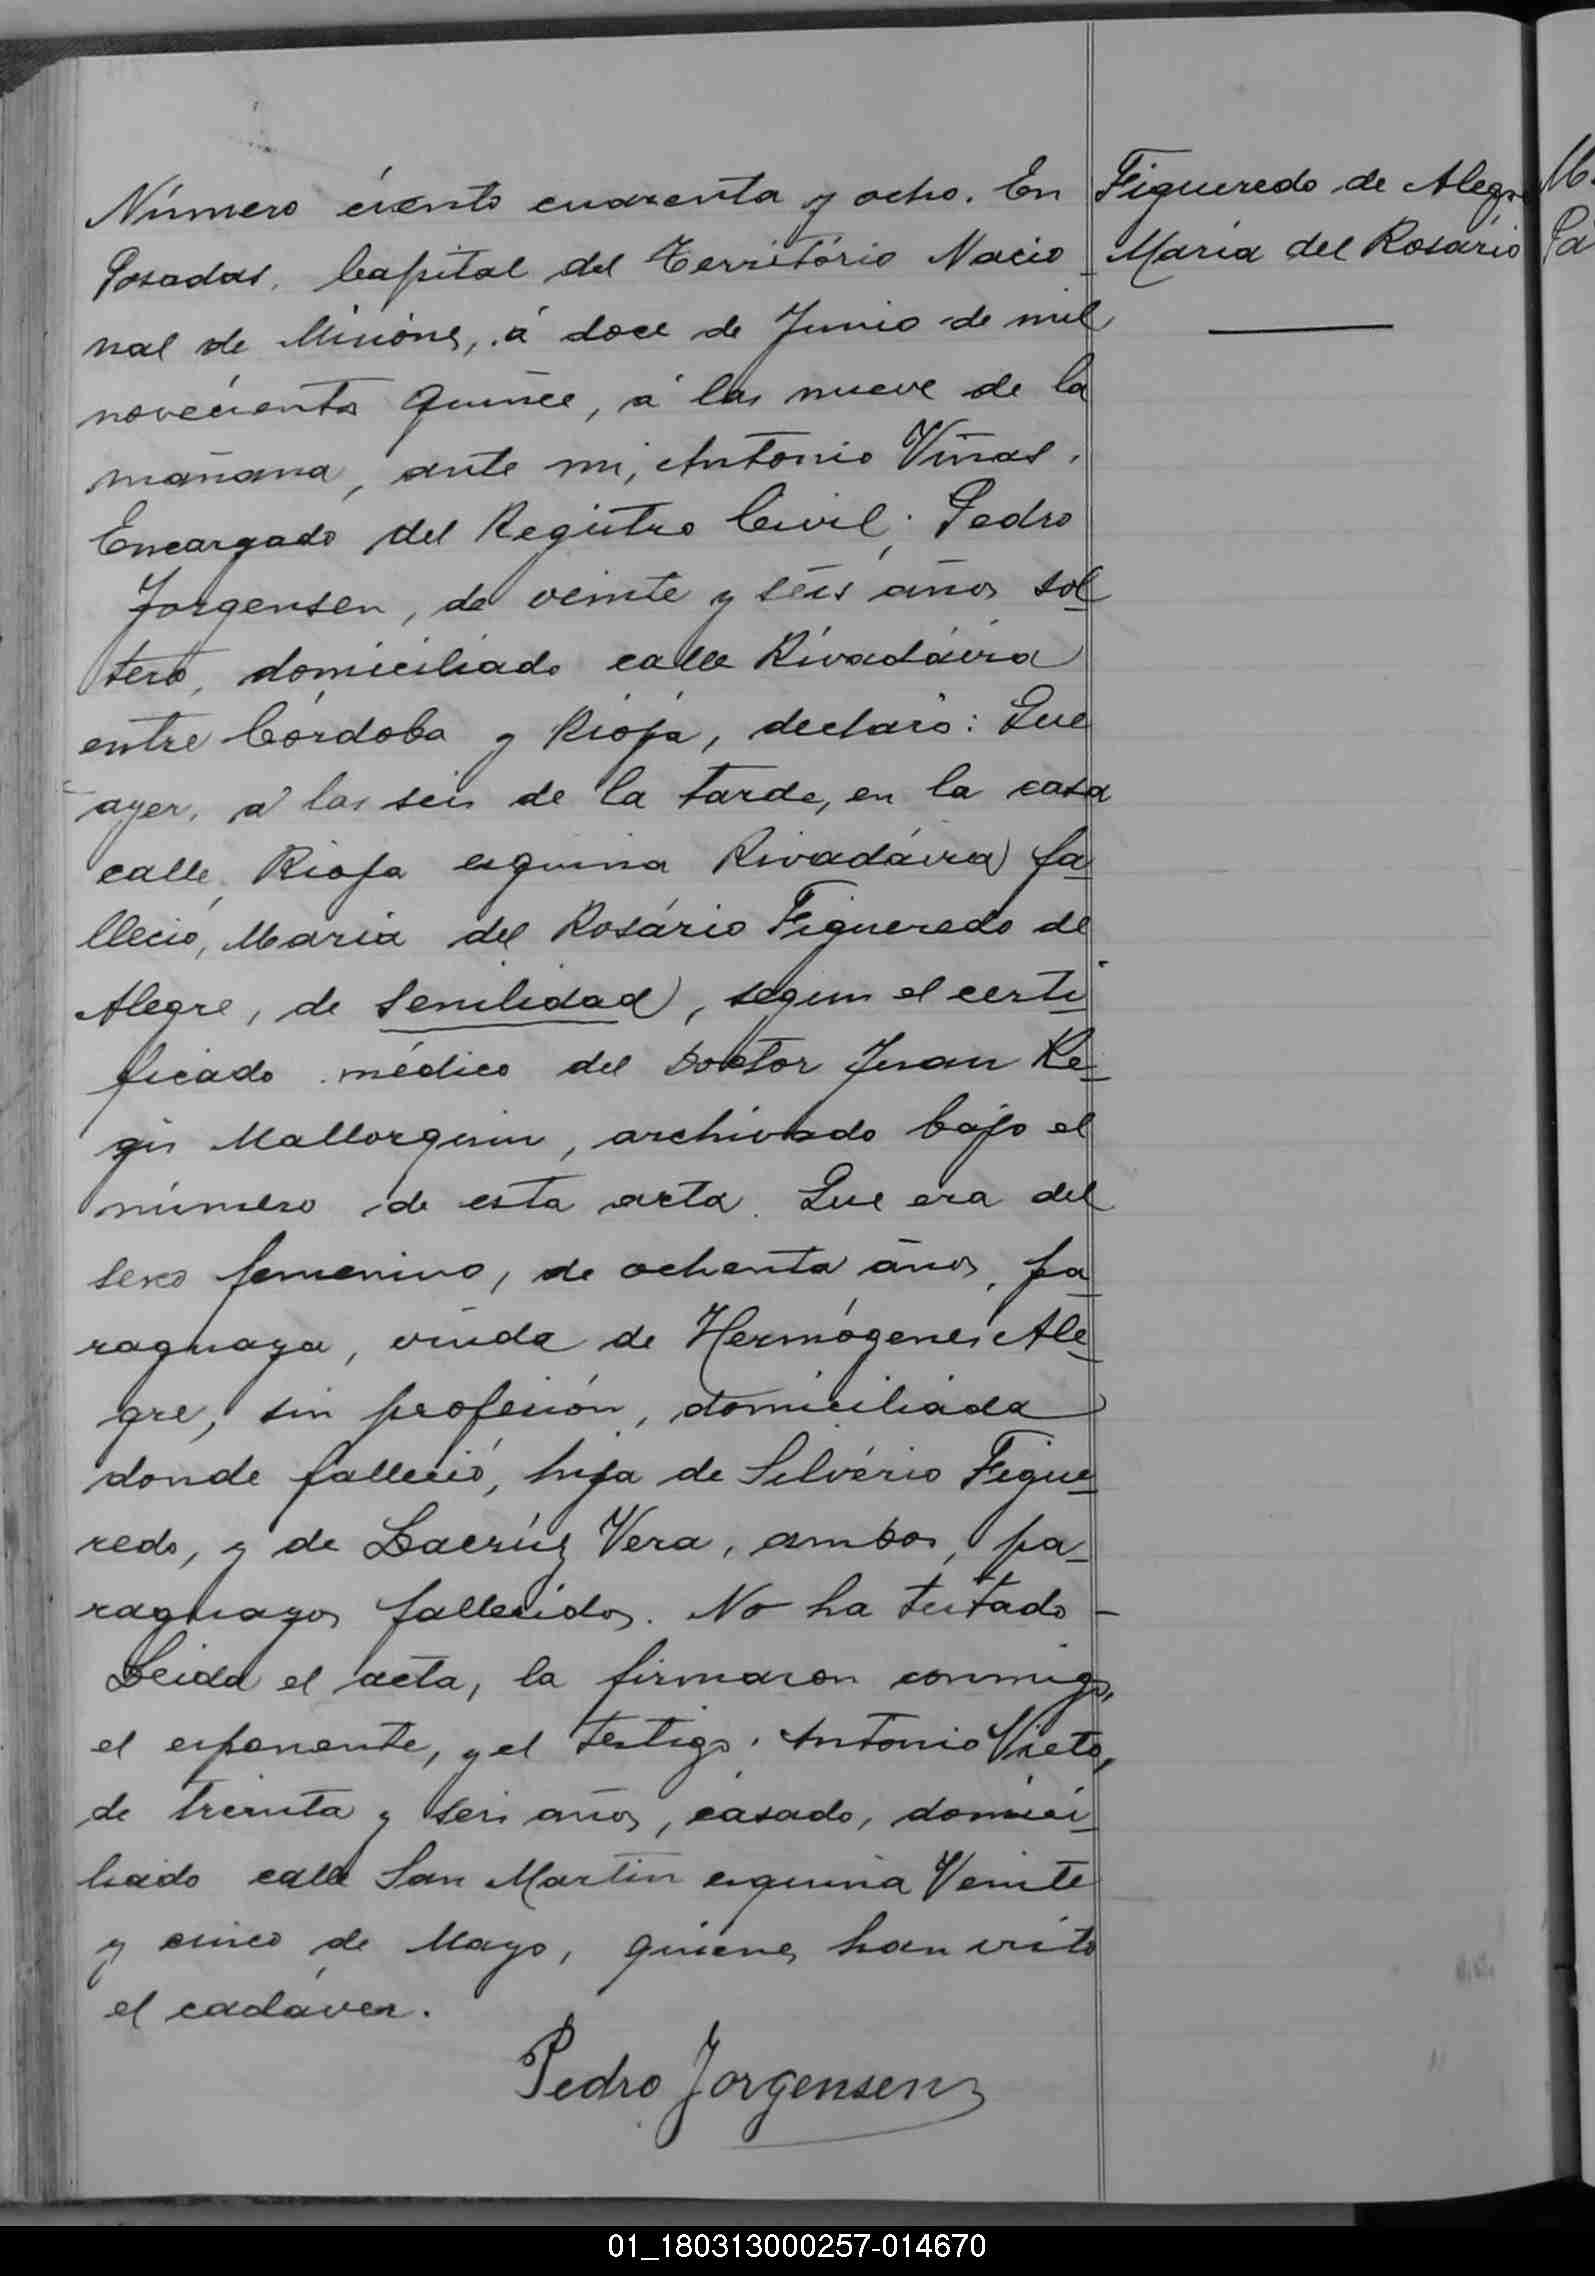 Número ciento cuarenta y ocho. En
Posadas, Capital del Territorio Nacio
nal de Misiones, á doce de Junio de mil
novecientos quince, á las nueve de la
mañana, ante mi, Antonio Viñas,
Encargado del Registro Civil; Pedro
Jorgensen, de veinte y seis años sol-
tero, domiciliado calle Rivadávia
entre Córdoba y Rioja, declaró: Que
ayer, á las seis de la tarde, en la casa
calle Rioja esquina Rivadávia fa-
lleció, Maria del Rosário Figueredo de
Alegre, de Senilidad, segun el certi-
ficado médico del Doctor Juan Re-
gis Mallorquin, archivado bajo el
número de esta acta. Que era del
sexo femenino, de ochenta años, pa-
raguaya, viuda de Hermógenes Ale-
gre, sin profesión, domiciliada
donde falleció, hija de Silvério Figue-
redo, y de Lacrúz Vera, ambos, pa-
raguayos fallecidos. No ha testado -
Leida el acta, la firmaron conmigo,
el exponente, y el testigo: Antonio Nieto,
de treinta y seis años, casado, domici-
liado calle San Martin esquina Veinte
y cinco de Mayo, quienes han visto
el cadáver.
Pedro Jorgensen
Figueredo de Alegre
Maria del Rosário
01_180313000257-014670